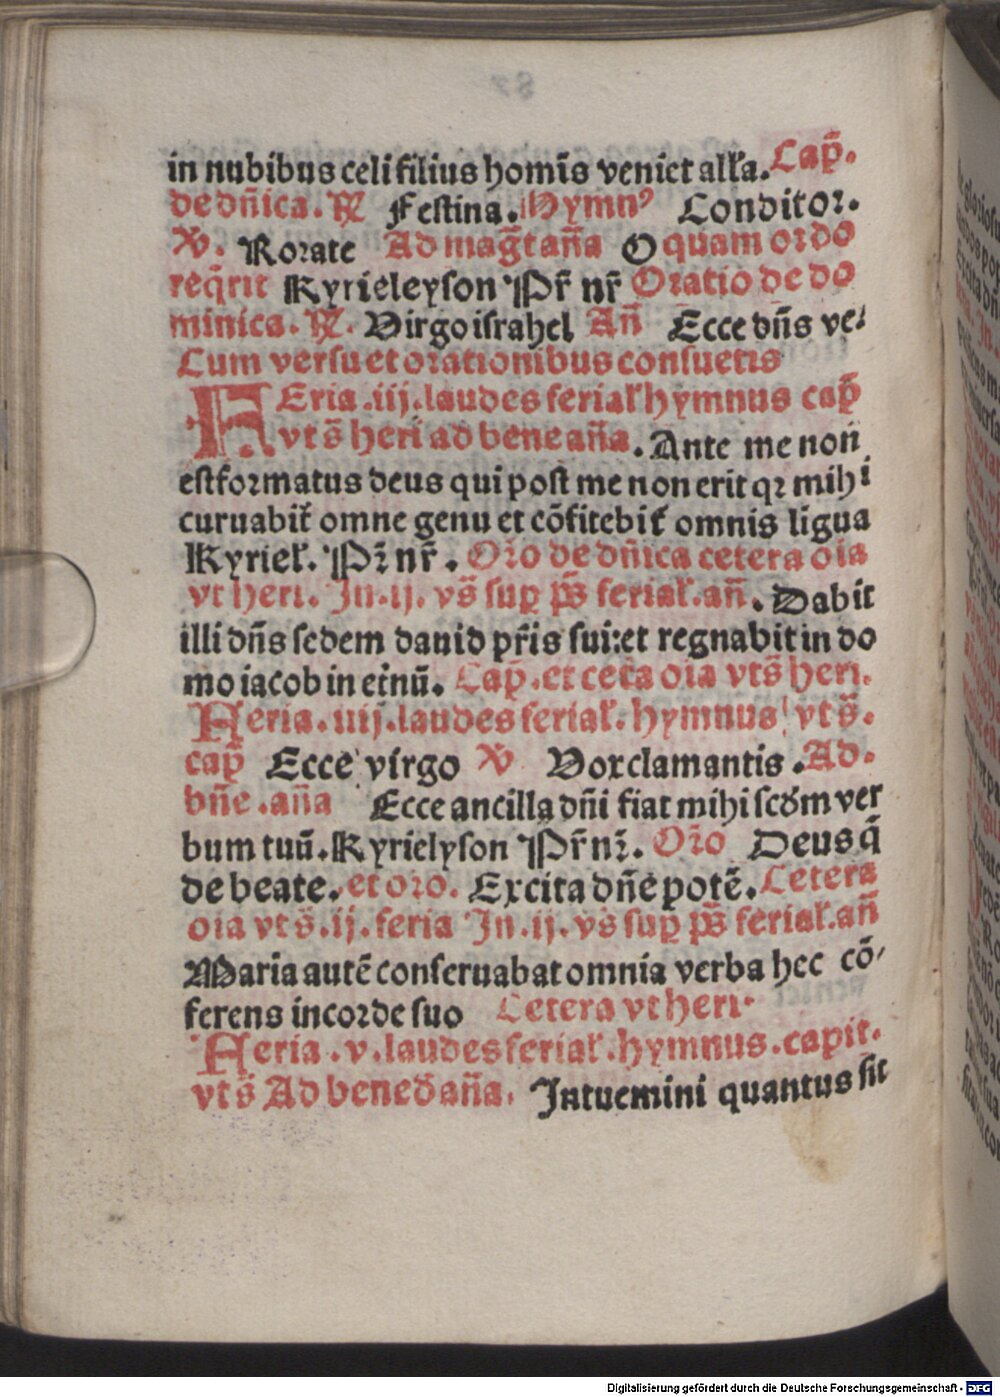 in nubibus celi filius homīs veniet alľa. Cap̄.
de dn̄ica. ℟ Festina. Hymnꝰ Conditor.
℣. Rorate Ad mag̃t an̄a O quam ordo
req̄rit Kyrieleyson Pr̄ nr̄ Oratio de do
minica. ℟. Virgo israhel An̄ Ecce dn̄s ve⸗
Cum versu et orationibus consuetis
FEria .iij. laudes ferial̕ hymnus cap̄
vt s̄ heri ad bene an̄a. Ante me non
est formatus deus qui post me non erit qꝛ mihi
curuabit̕ omne genu et cōfitebit̕ omnis ligua
Kyriel̕. Pr̄ nr̄. Oro de dn̄ica cetera oia
vt heri. In .ij. vs̄ suꝑ ps̄ ferial̕. an̄. Dabit
illi dn̄s sedem dauid pr̄is sui: et regnabit in do
mo iacob in et̕nū. Cap̄. et ceťa oia vt s̄ heri.
Feria .iiij. laudes ferial̕. hymnus vt s̄.
cap̄ Ecce virgo ℣ Vox clamantis. Ad.
bn̄e .an̄a Ecce ancilla dn̄i fiat mihi scd̄m ver
bum tuū. Kyrielyson Pr̄ nr̄. Oro Deus q̄
de beate. et oro. Excita dn̄e potē. Cetera
oia vt s̄ .ij. feria In .ij. vs̄ suꝑ ps̄ ferial̕. an̄
Maria autē conseruabat omnia verba hec cō⸗
ferens in corde suo Cetera vt heri.
Feria .v. laudes ferial̕. hymnus. capit.
vt s̄ Ad bened̄ an̄a. Intuemini quantus sit
Digitalisierung gefördert durch die Deutsche Forschungsgemeinschaft - DFG